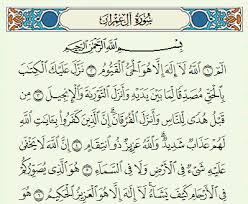 سُورَةُ آلِ عِمْرَانَ
بِسْمِ اللَّهِ الرَّحْمَٰنِ الرَّحِيمِ
الٓمٓ ١ اللَّهُ لَا إِلَٰهَ إِلَّا هُوَ الْحَيُّ الْقَيُّومُ ٢ نَزَّلَ عَلَيْكَ الْكِتَٰبَ
بِالْحَقِّ مُصَدِّقًا لِّمَا بَيْنَ يَدَيْهِ وَأَنزَلَ التَّوْرَىٰةَ وَالْإِنجِيلَ ٣ مِن
قَبْلُ هُدًى لِّلنَّاسِ وَأَنزَلَ الْفُرْقَانَ إِنَّ الَّذِينَ كَفَرُوا بِـَٔايَٰتِ اللَّهِ
لَهُمْ عَذَابٌ شَدِيدٌ وَاللَّهُ عَزِيزٌ ذُو انتِقَامٍ ٤ إِنَّ اللَّهَ لَا يَخْفَىٰ
عَلَيْهِ شَىْءٌ فِى الْأَرْضِ وَلَا فِى السَّمَآءِ ٥ هُوَ الَّذِى يُصَوِّرُكُمْ
فِى الْأَرْحَامِ كَيْفَ يَشَآءُ لَا إِلَٰهَ إِلَّا هُوَ الْعَزِيزُ الْحَكِيمُ ٦ هُوَ